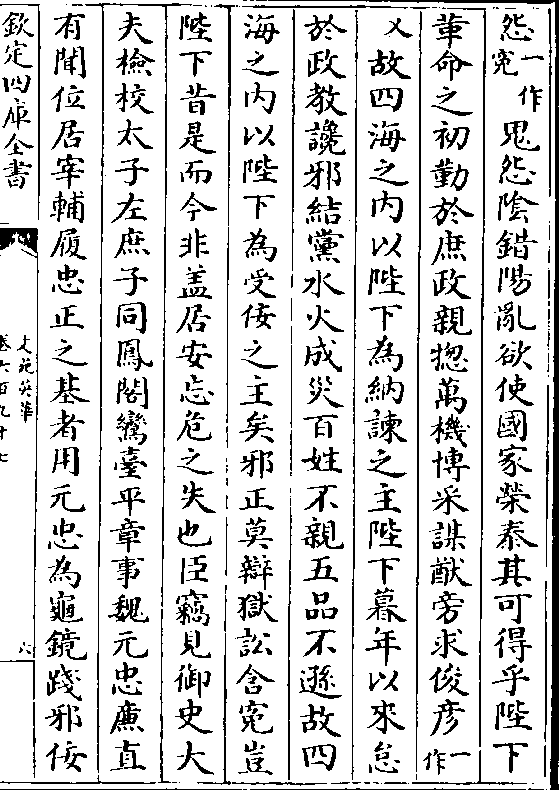 怨一作寃鬼怨隂錯陽亂欲使國家榮泰其可得乎陛下
革命之初勤於庶政親揔萬機博采謀猷旁求俊彦一作
乂故四海之内以陛下為納諫之主陛下暮年以來怠
於政教讒邪結黨水火成災百姓不親五品不遜故四
海之内以陛下為受佞之主矣邪正莫辯獄訟含寃豈
陛下昔是而今非盖居安忘危之失也臣竊見御史大
夫檢校太子左庶子同鳳閣鸞臺平章事魏元忠㢘直
有聞位居宰輔履忠正之基者用元忠為龜鏡踐邪佞
欽定四庫全書
文苑英華
卷六百九十七
六